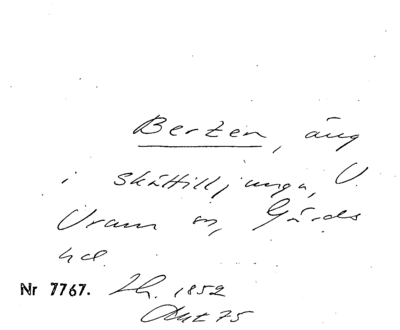 Berzen, äng
i Skättilljunga, V.
Vram sn, Gärds
hd.
Nr 7767. Lh. 1852
Akt 75